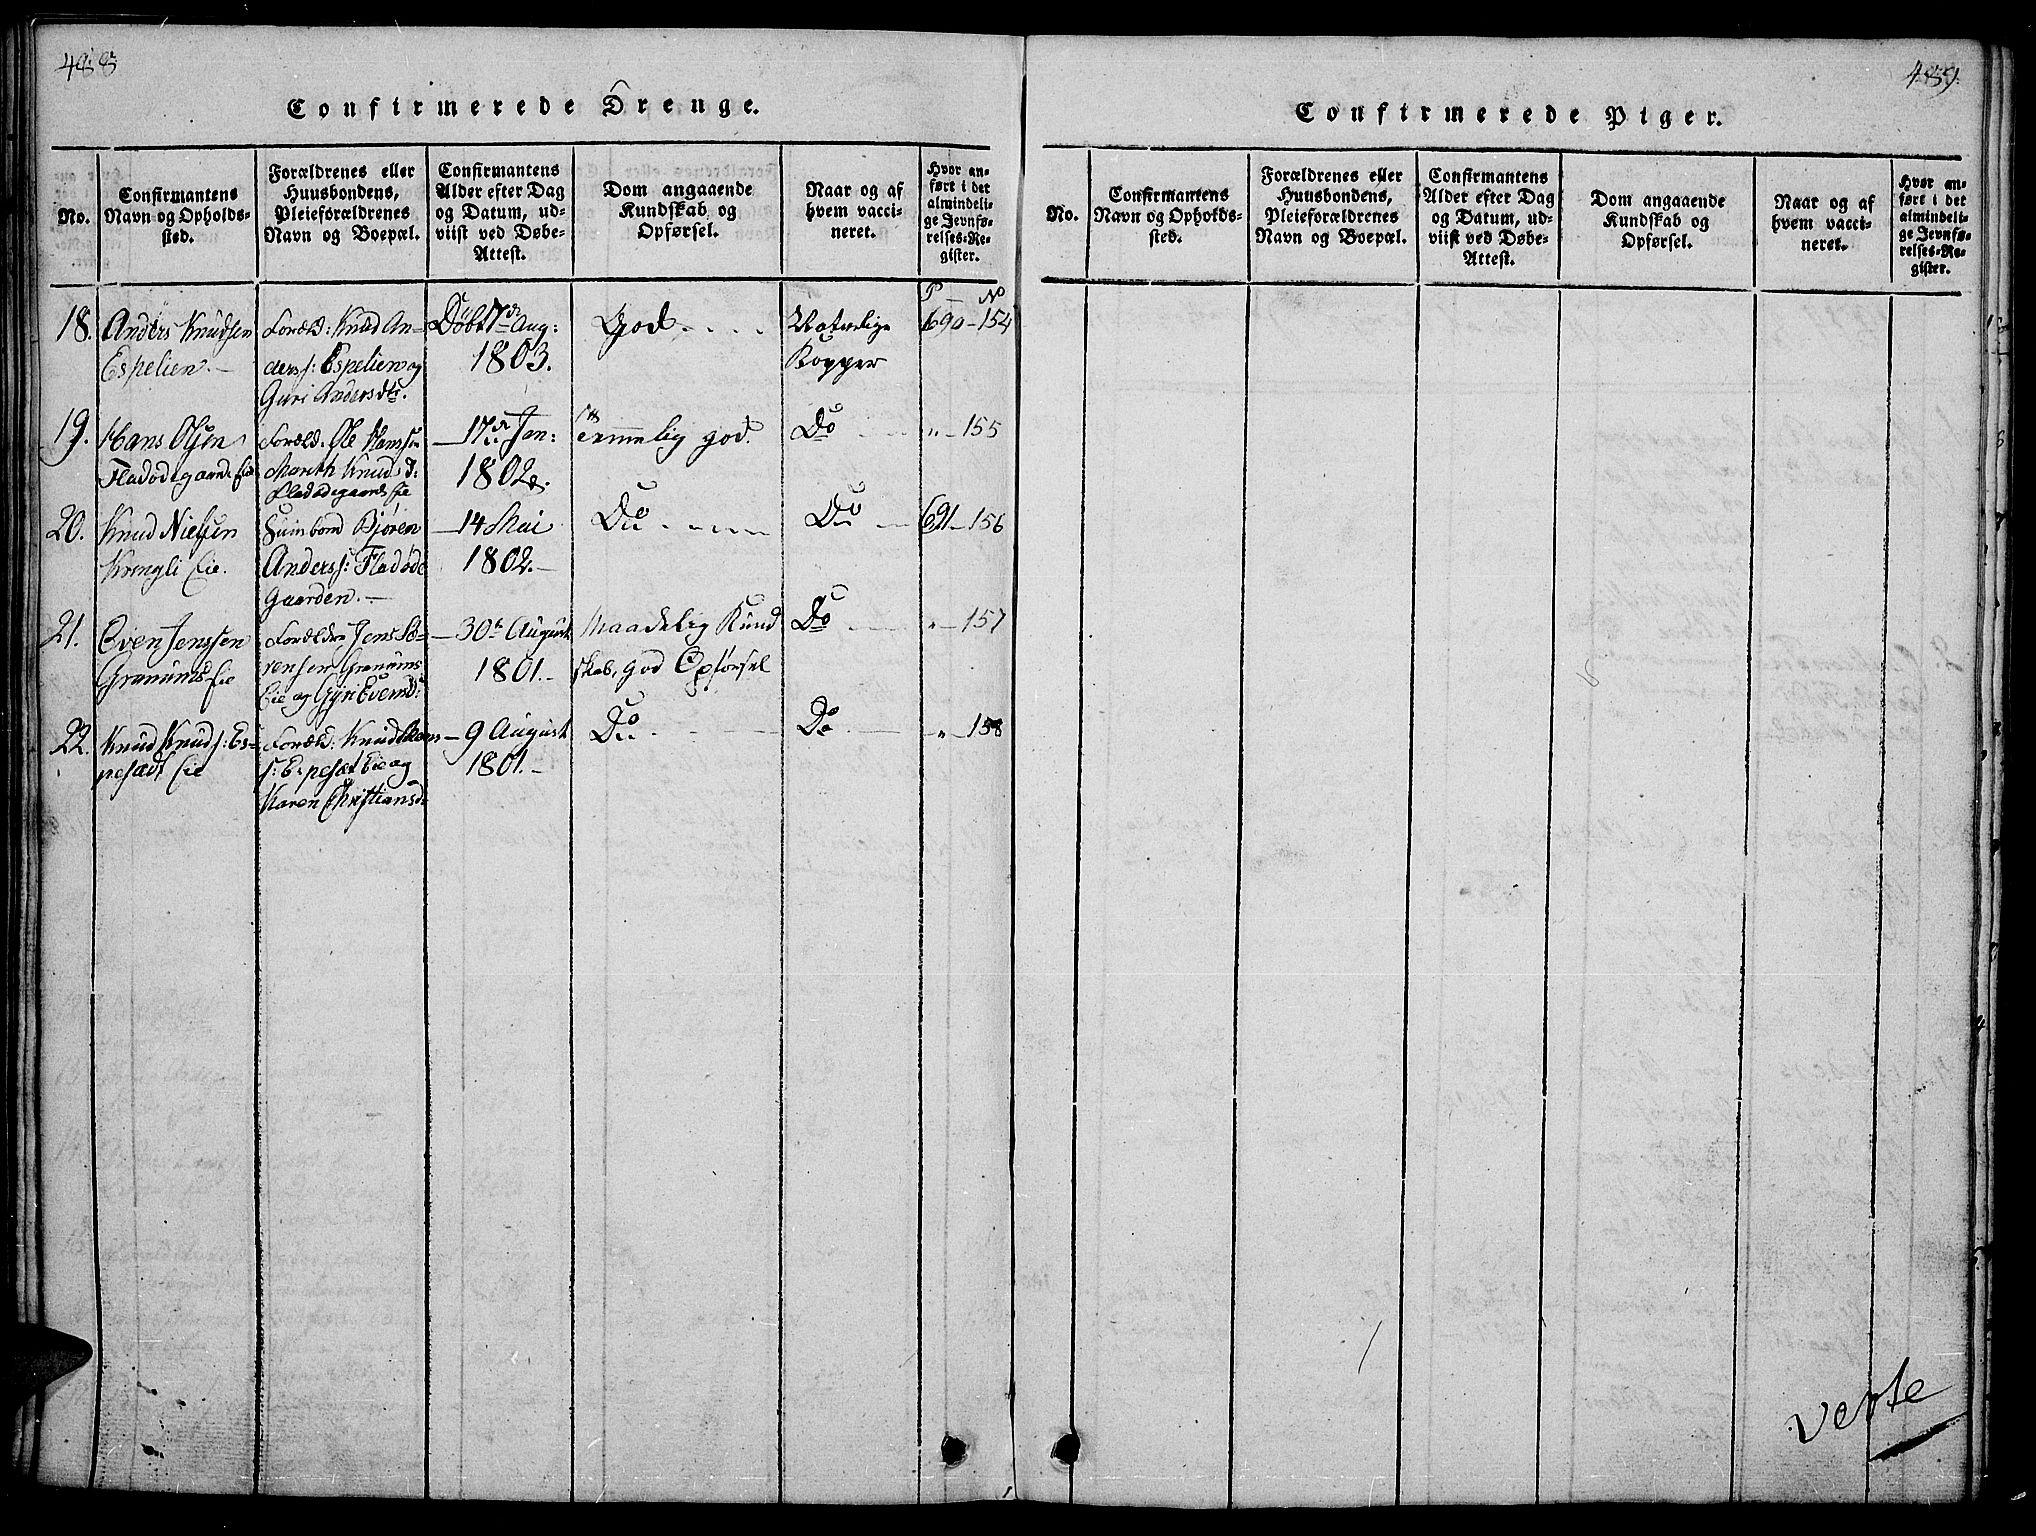 488
Confirmerede Drenge.
No.
Confirmantens
Navn og Opholds-
sted.
Forældrenes eller
Huusbondens,
Pleieforældrenes
Navn og Boepæl.
Confirmantens
Alder efter Dag
og Datum, ud-
viist ved Døbe-
Attest.
Dom angaaende
Kundskab og
Opførsel.
Naar og af
hvem vacci-
neret.
Hvor an-
ført i det
almindeli-
ge Jevnfø-
relses-Re-
gister.
P – No
18.
Anders Knudsen
Espelien.–
Foræld: Knud An-
derss: Espelien og
Guri Andersdtr.
Døbt 7de Aug:
1803.
God
Naturlige
Kopper
690–154
19.
Hans Olsen
Fladødegaards Eie
Foræld. Ole Hansen
Marith Knudsd:
Fladødegaards Eie
–17de Jan:
1802.
temmelig god.
Do
"–155
20.
Knud Nielsen
Kringli Eie.
Huusbond Bjøren
Anderss: Fladøde
Gaarden.–
–14 Mai
1802.–
Do
Do
691–156
21.
Even Jenssen
Granums Eie
Forældre Jens Sø-
rensen Granums
Eie og Gjøri Evensd:
–30te August
1801.–
Maadelig Kund
skab, god Opførsel
Do
"–157
22.
Knud Knuds: Es-
pesædt Eie
Foræld: Knud Hans
s: Espesæt Eie og
Karen Christiansd:
–9 August
1801.–
Do
Do
"–158
489.
Confirmerede Piger.
No.
Confirmantens
Navn og Opholds-
sted.
Forældrenes eller
Huusbondens,
Pleieforældrenes
Navn og Boepæl.
Confirmantens
Alder efter Dag
og Datum, ud-
viist ved Døbe-
Attest.
Dom angaaende
Kundskab og
Opførsel.
Naar og af
hvem vacci-
neret.
Hvor an-
ført i det
almindeli-
ge Jevnfø-
relses-Re-
gister.
verte